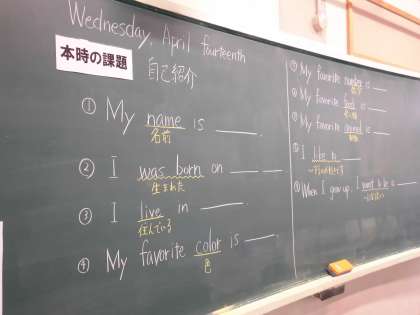 Wednesday, April fourteenth
本時の課題
自己紹介
① My name is ____.
名前
② I was born on ____.
生まれた
③ I live in ____.
住んでいる
④ My favorite color is ____.
色
⑤ My favorite number is ____
⑥ My favorite food is ____
⑦ My favorite animal is ____
I like to ____
When I grow up, I want to be ____